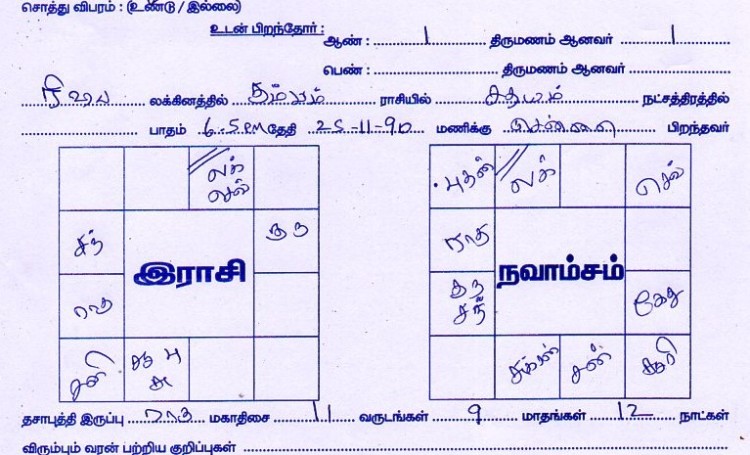 சொத்து விபரம் : (உண்டு / இல்லை)
உடன் பிறந்தோர் : ஆண் : 1 திருமணம் ஆனவர் 1
பெண் : திருமணம் ஆனவர்
ரிஷப லக்கினத்தில் கும்பம் ராசியில் சதயம் நட்சத்திரத்தில்
பாதம் 6.5 PM தேதி 25-11-90 மணிக்கு சென்னை பிறந்தவர்
லக் செவ்
சந் குரு
இராசி
ராகு
சனி சூ பு சு
புதன் லக் செவ்
ராகு
நவாம்சம்
குரு சந் கேது
சுக்கிரன் சனி சூரி
தசாபுத்தி இருப்பு ராகு மகாதிசை 11 வருடங்கள் 9 மாதங்கள் 12 நாட்கள்
விரும்பும் வரன் பற்றிய குறிப்புகள்